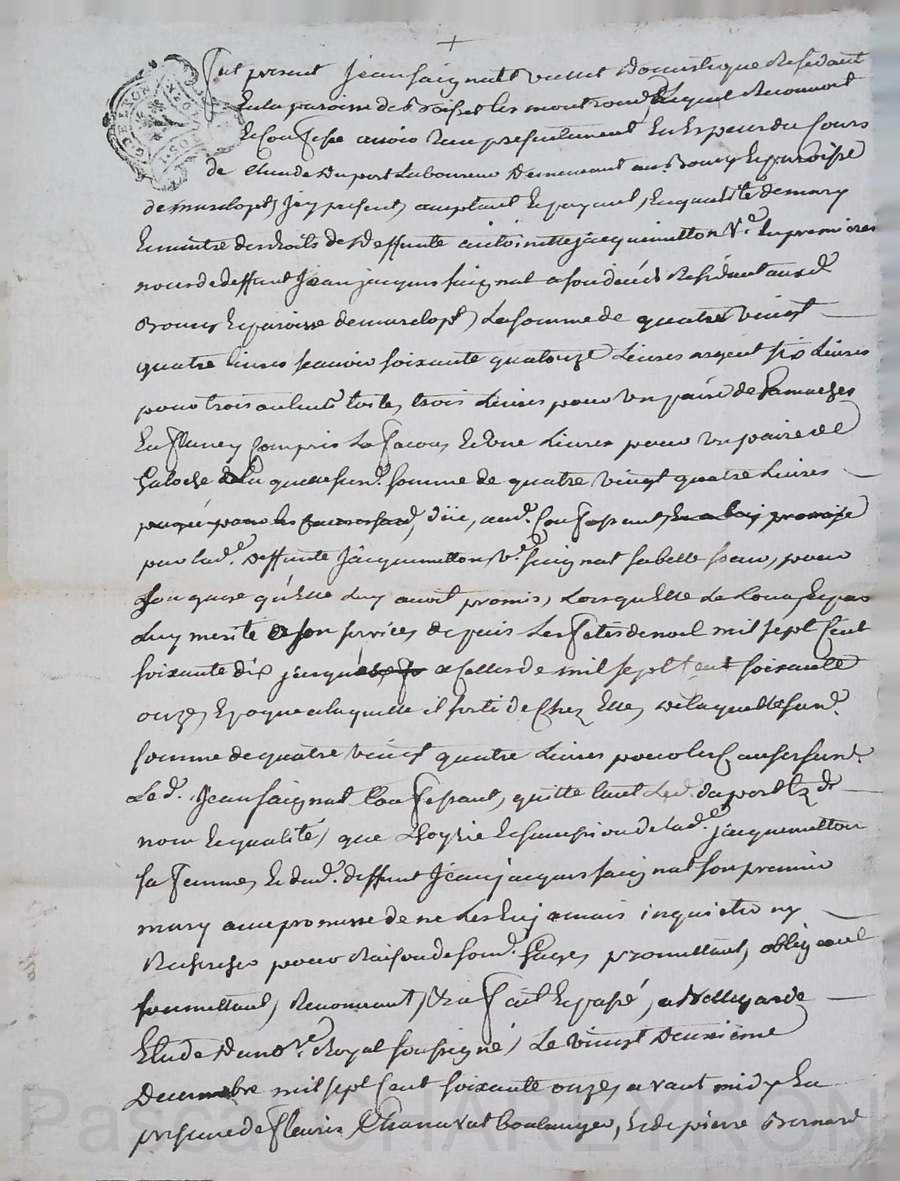 +
GEN. DE LYON
Fut present Jean Saignat valet domestique Residant
En la paroisse de Boisset les montrond, Lequel Reconnoit
Et Confesse avoir Reçu présentement En Especes du Cours
de Claude Duport Laboureur Demeurant au Bourg Et paroisse
de marclopt, Jcy present, acceptant Et payant, En qualité de mary
Et maitre des droits de deffunte antoinette jacquemetton Ve. En premieres
noces de deffunt Jean jacques Saignat Residant aud.
Bourg Et paroisse de marclopt, La somme de quatre vingt
quatre Livres sçavoir soixante quatorze Livres argent six Livres
pour trois aulnes toiles, trois Livres pour Un paire de Gamaches
Compris La façon, Et Une Livres pour Un paire de
Galoche Laquelle susd. somme de quatre vingt quatre Livres
düe, aud. Confessant
par lad. deffunte Jacquemetton, Ve. Saignat sa belle soeur, pour
Son gage qu'Elle Luy avoit promis, Lorsqu'elle Le Loua Et pour
Luy merité de son services depuis Les fêtes de noel mil sept Cent
soixante dix jusqu'à Celles de mil sept Cent soixante
onze, Epoque a laquelle il sorti de Chez Elle, de laquelle susd.
somme de quatre vingt quatre Livres pour les Causes susd.
Led. Jean Saignat Confessant, quitte tant Led. duport Esd.
nom Et qualité, que L'hoyrie Et succession de lad. jacquemetton
sa femme, Et dud. deffunt Jean jacques Saignat son premier
mary avec promesse de ne Les En jamais inquieter ny
Rechercher pour Raison de sond. Gages, promettant, obligeant
soumettant, Renonçant, &a fait Et passé, a Bellegarde
Etude du nore. Royal soussigné, Le vingt Deuxieme
Decembre mil sept Cent soixante onze, avant midy En
presence de fleury Chanavat boulanger, Et de pierre Bernard
Pascal CHAREYRON